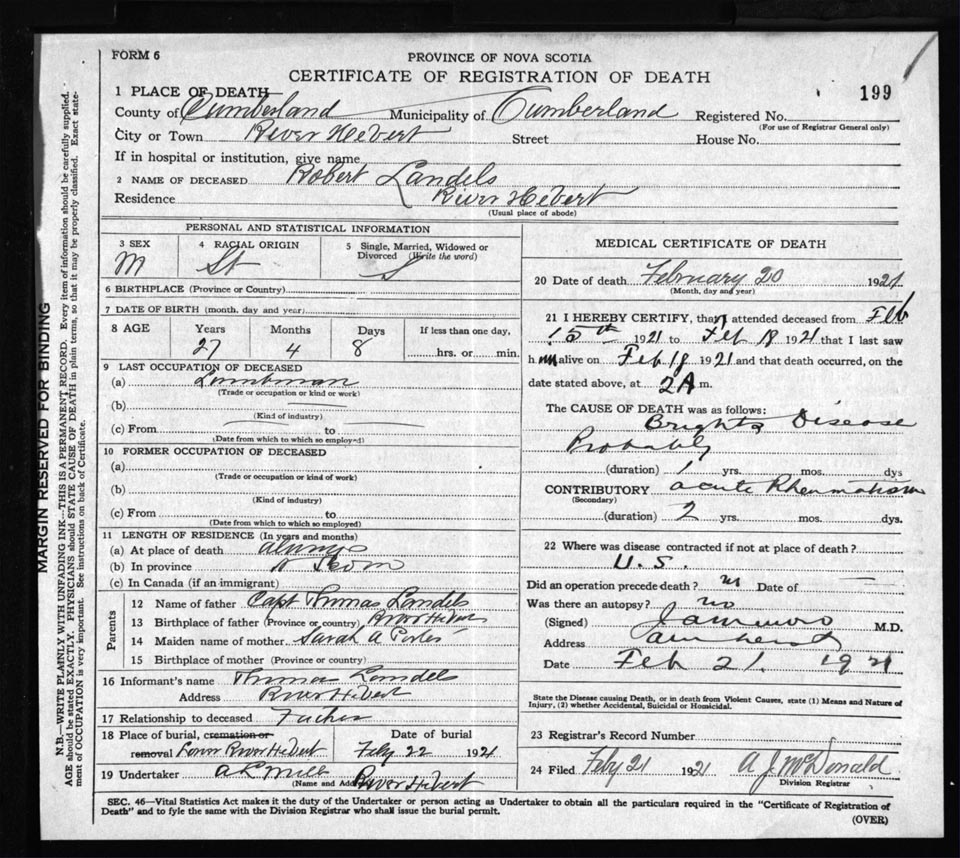 FORM 6
PROVINCE OF NOVA SCOTIA
CERTIFICATE OF REGISTRATION OF DEATH
199
1 PLACE OF DEATH
County of Cumberland Municipality of Cumberland Registered No.
(For use of Registrar General only)
City or Town River Hebert Street House No.
If in hospital or institution, give name
2 NAME OF DECEASED Robert Landels
Residence River Hebert
(Usual place of abode)
PERSONAL AND STATISTICAL INFORMATION
3 SEX
M
4 RACIAL ORIGIN
5 Single, Married, Widowed or
Divorced (Write the word)
S
6 BIRTHPLACE (Province or Country)
7 DATE OF BIRTH (month, day and year)
8 AGE Years Months Days If less than one day,
27 4 8 hrs. or min.
9 LAST OCCUPATION OF DECEASED
(a)
(Trade or occupation or kind or work)
(b)
(Kind of industry)
(c) From to
(Date from which to which so employed)
10 FORMER OCCUPATION OF DECEASED
(a)
(Trade or occupation or kind of work)
(b)
(Kind of industry)
(c) From to
(Date from which to which so employed)
11 LENGTH OF RESIDENCE (In years and months)
(a) At place of death always
(b) In province
(c) In Canada (if an immigrant)
Parents
12 Name of father Capt Thomas Landels
13 Birthplace of father (Province or country) River Hebert
14 Maiden name of mother Sarah A
15 Birthplace of mother (Province or country)
16 Informant's name Thomas Landels
Address River Hebert
17 Relationship to deceased Father
18 Place of burial, cremation or
removal Lower River Hebert
Date of burial
Feby 22 1921
19 Undertaker
(Name and Address) River Hebert
MEDICAL CERTIFICATE OF DEATH
20 Date of death February 20 1921
(Month, day and year)
21 I HEREBY CERTIFY, that I attended deceased from Feb
15th 1921 to Feb 18 1921 that I last saw
h im alive on Feb 18 1921 and that death occurred, on the
date stated above, at 2 A m.
The CAUSE OF DEATH was as follows:
Brights Disease
Probably
(duration) 1 yrs. mos. dys
CONTRIBUTORY acute Rheumatism
(Secondary)
(duration) 2 yrs. mos. dys.
22 Where was disease contracted if not at place of death?
U.S.
Did an operation precede death? no Date of
Was there an autopsy? no
(Signed) M.D.
Address Amherst
Date Feb 21. 1921
State the Disease causing Death, or in death from Violent Causes, state (1) Means and Nature of
Injury, (2) whether Accidental, Suicidal or Homicidal.
23 Registrar's Record Number
24 Filed Feby 21 1921 A J. McDonald
Division Registrar
SEC. 46—Vital Statistics Act makes it the duty of the Undertaker or person acting as Undertaker to obtain all the particulars required in the "Certificate of Registration of
Death" and to fyle the same with the Division Registrar who shall issue the burial permit.
(OVER)
MARGIN RESERVED FOR BINDING
N.B.—WRITE PLAINLY WITH UNFADING INK—THIS IS A PERMANENT RECORD. Every item of information should be carefully supplied.
AGE should be stated EXACTLY. PHYSICIANS should STATE CAUSE OF DEATH in plain terms, so that it may be properly classified. Exact state-
ment of OCCUPATION is very important. See instructions on back of Certificate.